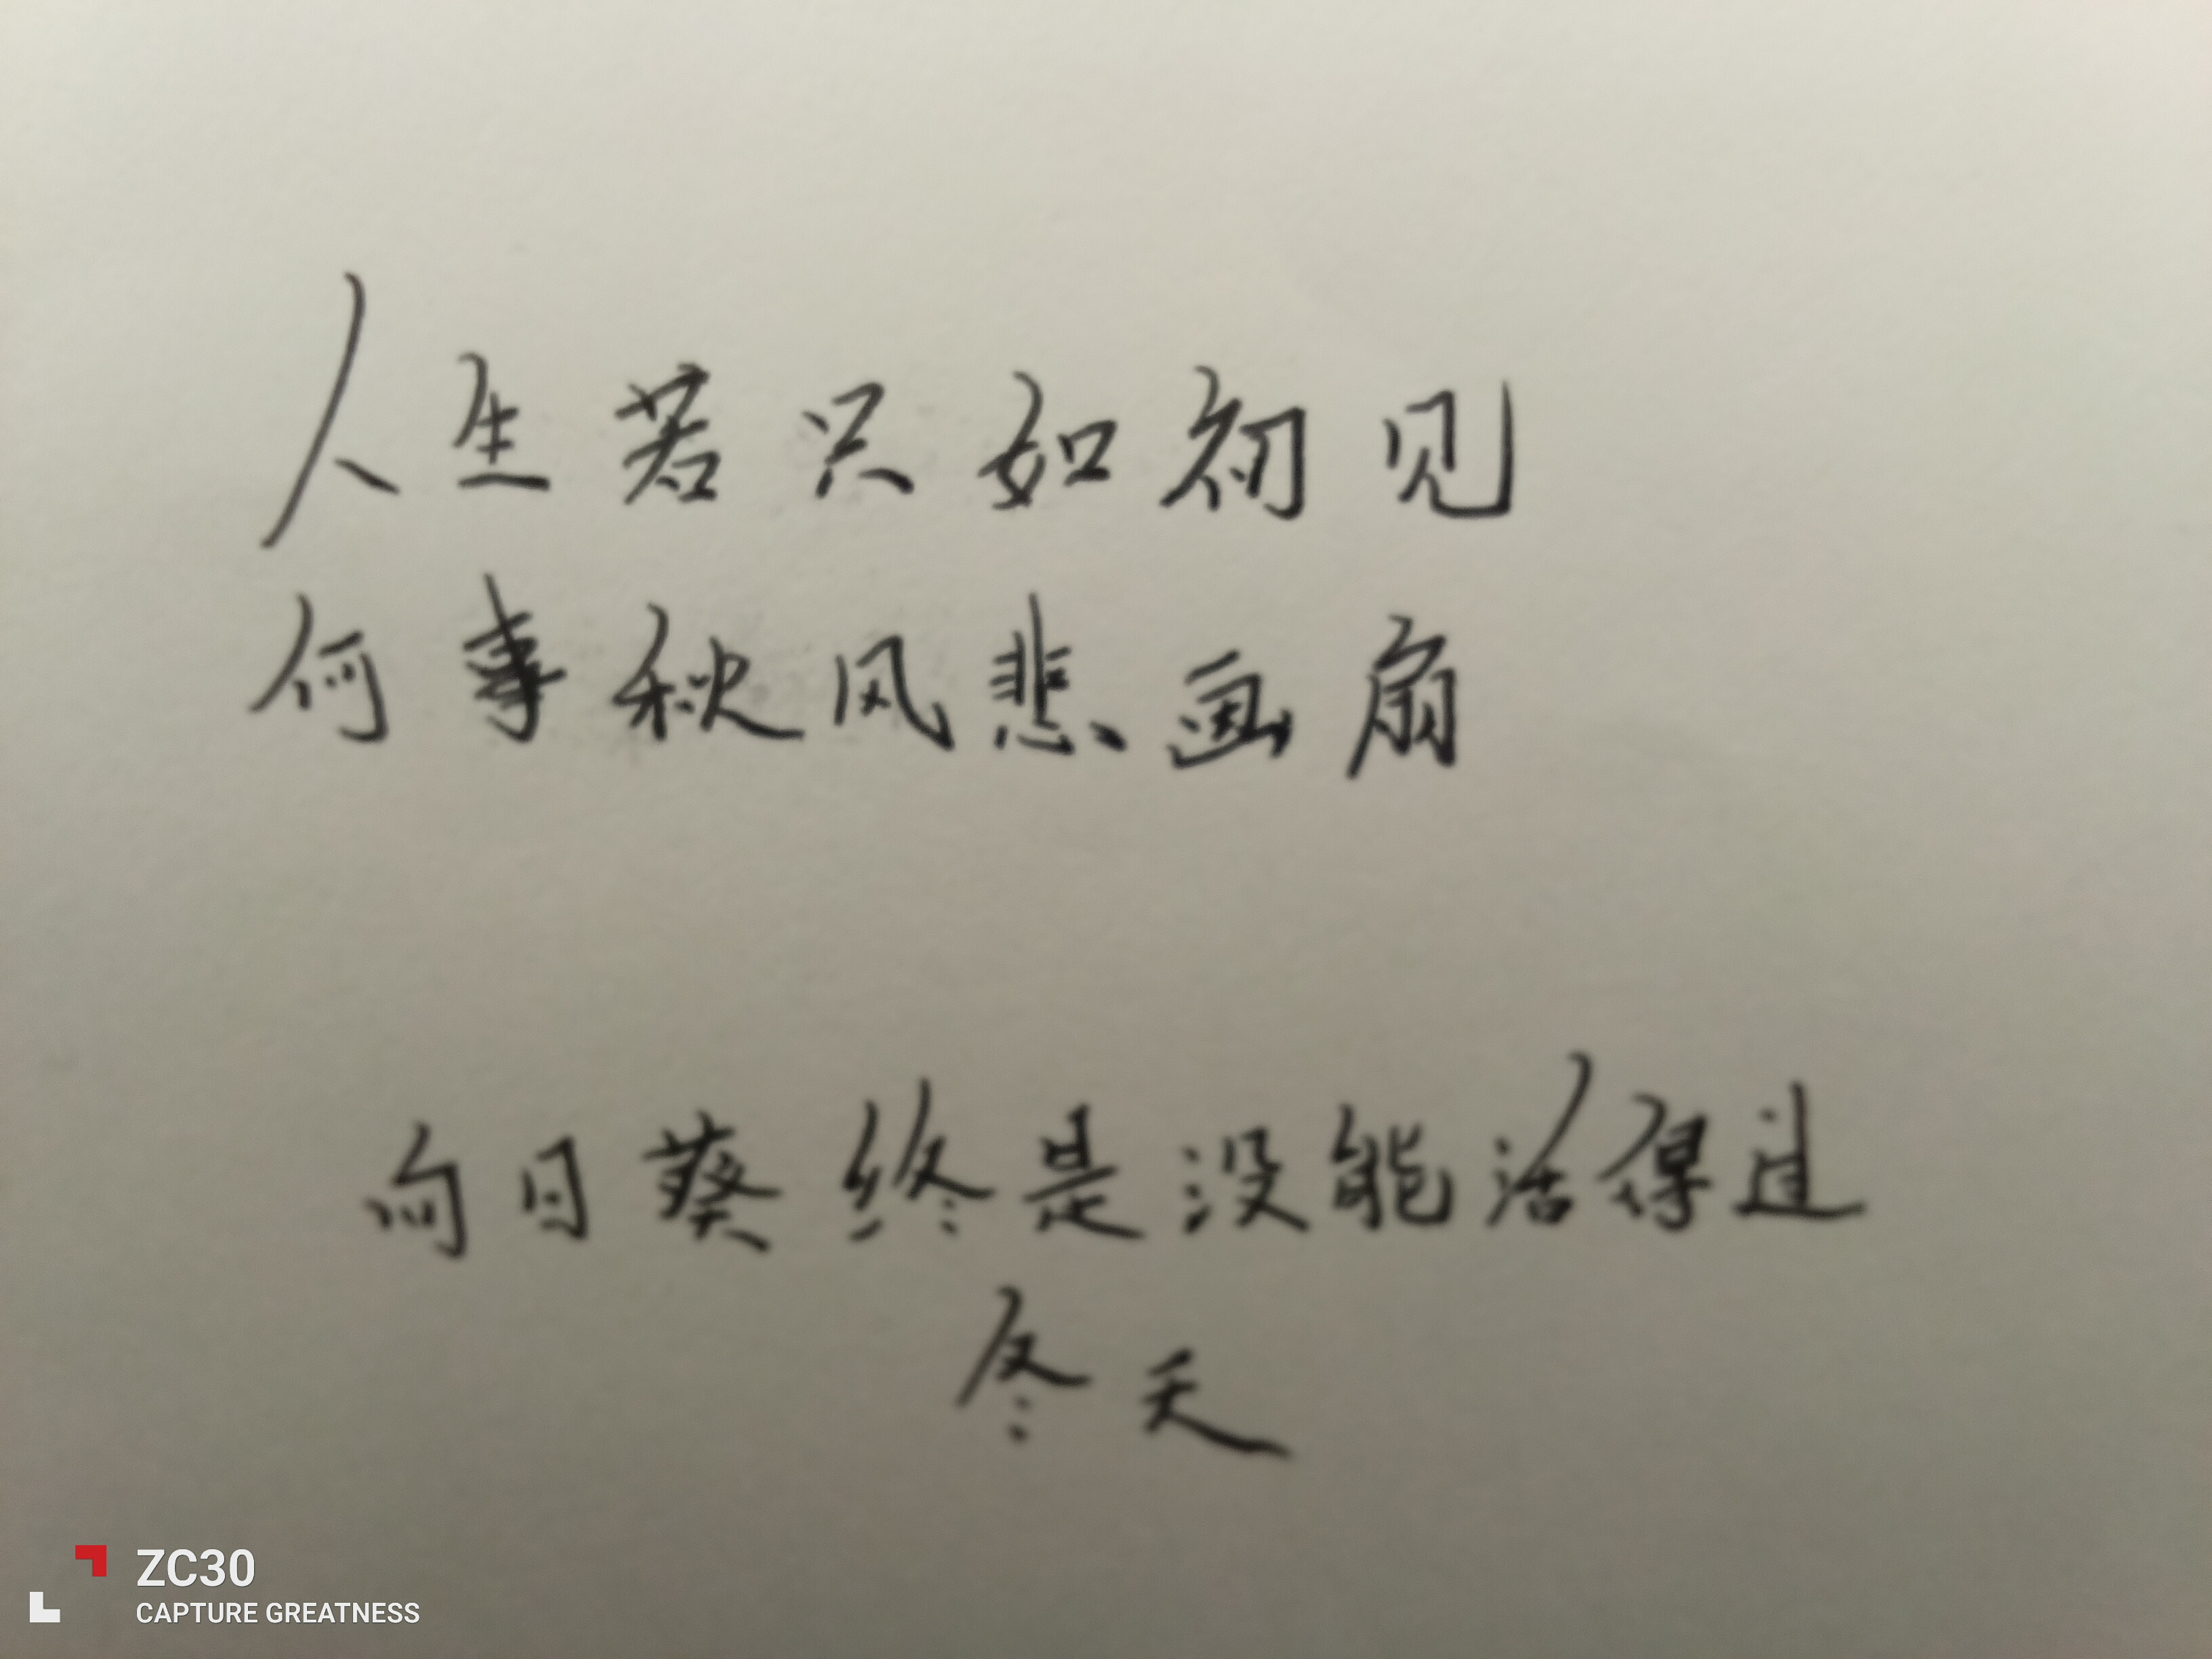 人生若只如初见
何事秋风悲画扇
向日葵终是没能活得过
冬天
ZC30
CAPTURE GREATNESS